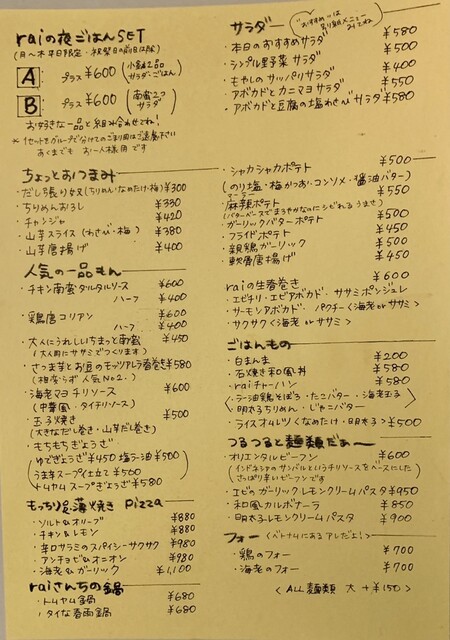 raiの夜ごはんSET
(月〜木 平日限定・祝祭日の前日は除)
A プラス ¥600 (小鉢2品 サラダ・ごはん)
B プラス ¥600 (南蛮2ヶ サラダ)
お好きな一品と組み合わせてね!
*1セットをグループで分けてのご利用はご遠慮下さい
あくまでも お一人様用です
ちょっとおつまみ
・だし張り奴(ちりめん・なめたけ・梅) ¥300
・ちりめんおろし ¥330
・チャンジャ ¥420
・山芋スライス(わさび・梅) ¥380
・山芋唐揚げ ¥400
人気の一品もん
・チキン南蛮タルタルソース ¥600
ハーフ ¥400
・鶏唐コリアン ¥600
ハーフ ¥400
・大人にうれしいちまっと南蛮 ¥450
(大人用にササミでつくります)
・さつま芋とお豆のモッツアレラ春巻き ¥580
(相変らず人気No2.)
・海老マヨチリソース ¥600
(中華風・タイチリソース)
・玉子焼き ¥500
(大きなだし巻き・山芋だし巻き)
・もちもちぎょうざ
ゆでぎょうざ¥450 塩ラー油¥500
うま辛スープ仕立て ¥500
トムヤムスープぎょうざ ¥580
もっちり&薄焼き pizza
・ソルト&オリーブ ¥880
・チキン&レモン ¥880
・辛口サラミのスパイシーサクサク ¥980
・アンチョビ&オニオン ¥980
・海老&ガーリック ¥1,100
raiさんちの鍋
・トムヤム鍋 ¥680
・タイな春雨鍋 ¥680
サラダ (おすすめ〜は別紙メニューみてネ)
・本日のおすすめサラダ ¥580
・シンプル野菜サラダ ¥500
・もやしのサッパリサラダ ¥400
・アボカドとカニマヨサラダ ¥550
・アボカドと豆腐の塩わさびサラダ ¥580
・シャカシャカポテト ¥500
(のり塩・梅かつお・コンソメ・醤油バター)
・麻辣ポテト ¥550
マーラー
(バターベースでまろやかなのにシビれるうまさ)
・ガーリックバターポテト ¥500
・フライドポテト ¥450
・親鶏ガーリック ¥500
・軟骨唐揚げ ¥450
raiの生春巻き ¥600
・エビチリ・エビアボカド・ササミポンジュレ
・サーモンアボカド・パクチー<海老orササミ>
・サクサク<海老orササミ>
ごはんもの
・白まんま ¥200
・石焼き和風丼 ¥580
・raiチャーハン ¥580
・ラー油鶏そぼろ・たこバター・海老玉子
明太子ちりめん・じゃこバター
・ライスオムレツ<なめたけ・明太子> ¥500
つるつるっと麺類だぁ〜
・オリエンタルビーフン ¥600
(インドネシアのサンバルというチリソースをベースにしたさっぱり辛いビーフンです)
・エビのガーリックレモンクリームパスタ ¥950
・和風カルボナーラ ¥850
・明太子レモンクリームパスタ ¥900
フォー (ベトナムにあるアレだよ!)
・鶏のフォー ¥700
・海老のフォー ¥700
<ALL麺類 大 +¥150>